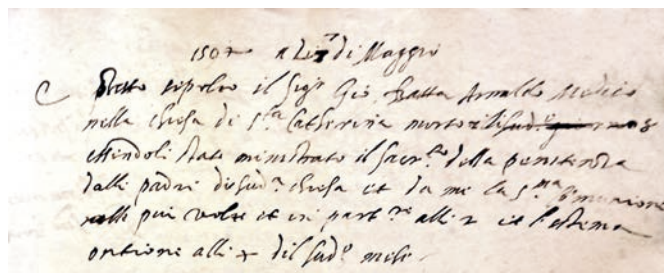 a di 7 di Maggio
Fu sepolto il Sigr Gio. Batta Arnaldo Medico
nella chiesa di S.ta Catherina morto il sud.o
essendoli stato ministrato il sacr.to della penitenza
dalli padri di sud.a chiesa et da me la S.ma Comunione
più volte et in part.re alli 2 et l'estrema
ontione alli del sud.o mese.